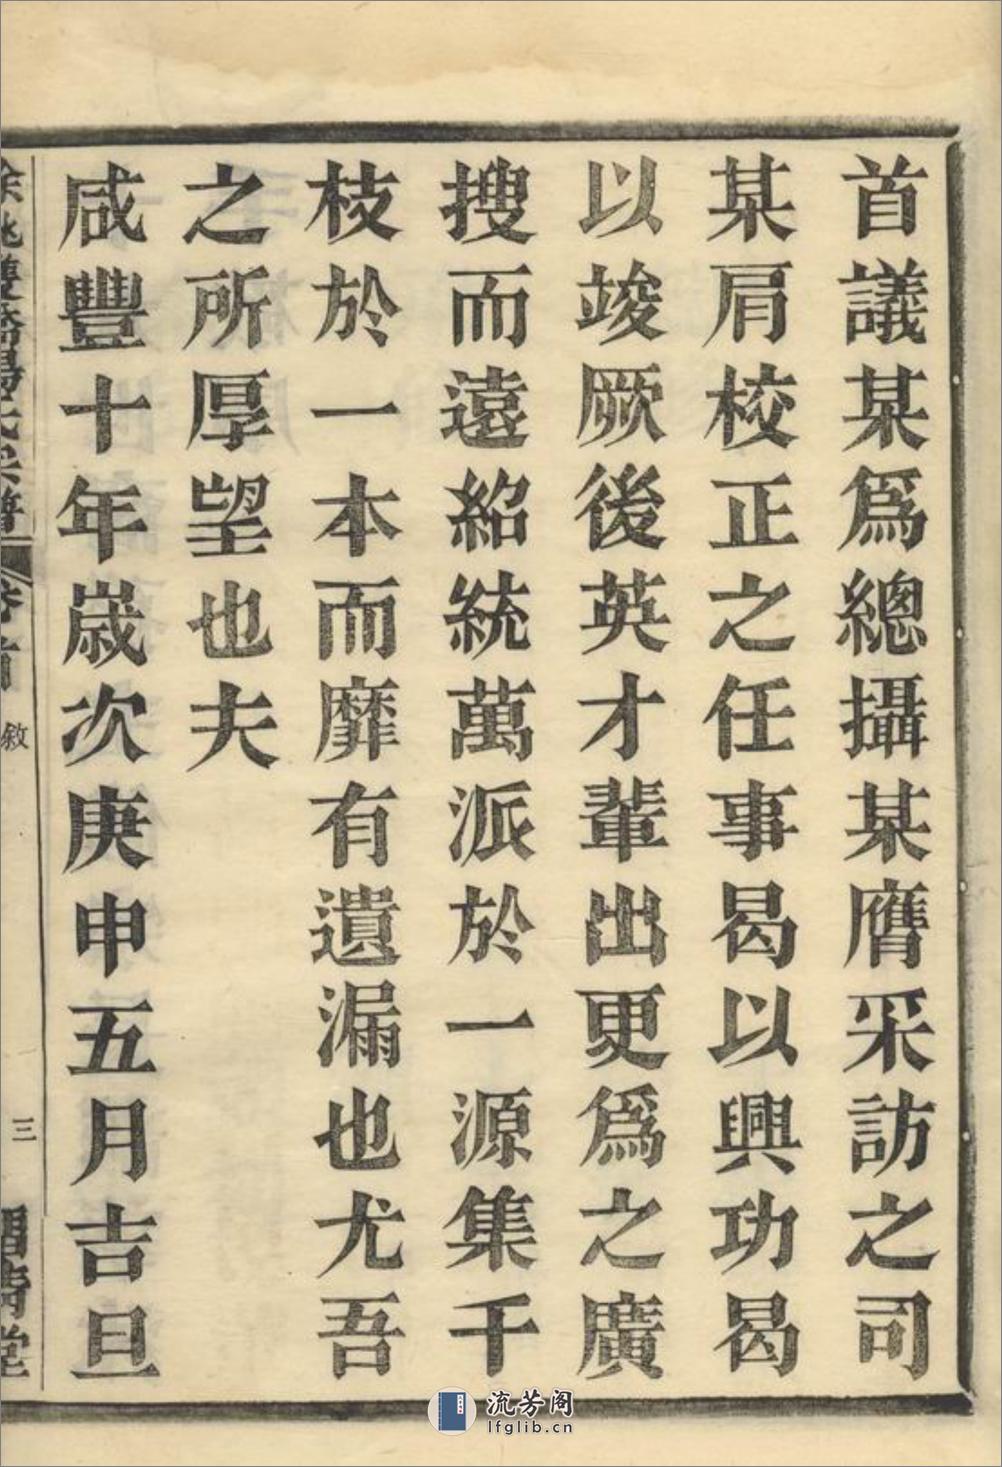 首議某爲總攝某膺采訪之司
某肩校正之任事曷以興功曷
以竣厥後英才輩出更爲之廣
搜而遠紹統萬派於一源集千
枝於一本而靡有遺漏也尤吾
之所厚望也夫
咸豐十年歲次庚申五月吉旦
敘
三
流芳阁
lfglib.cn